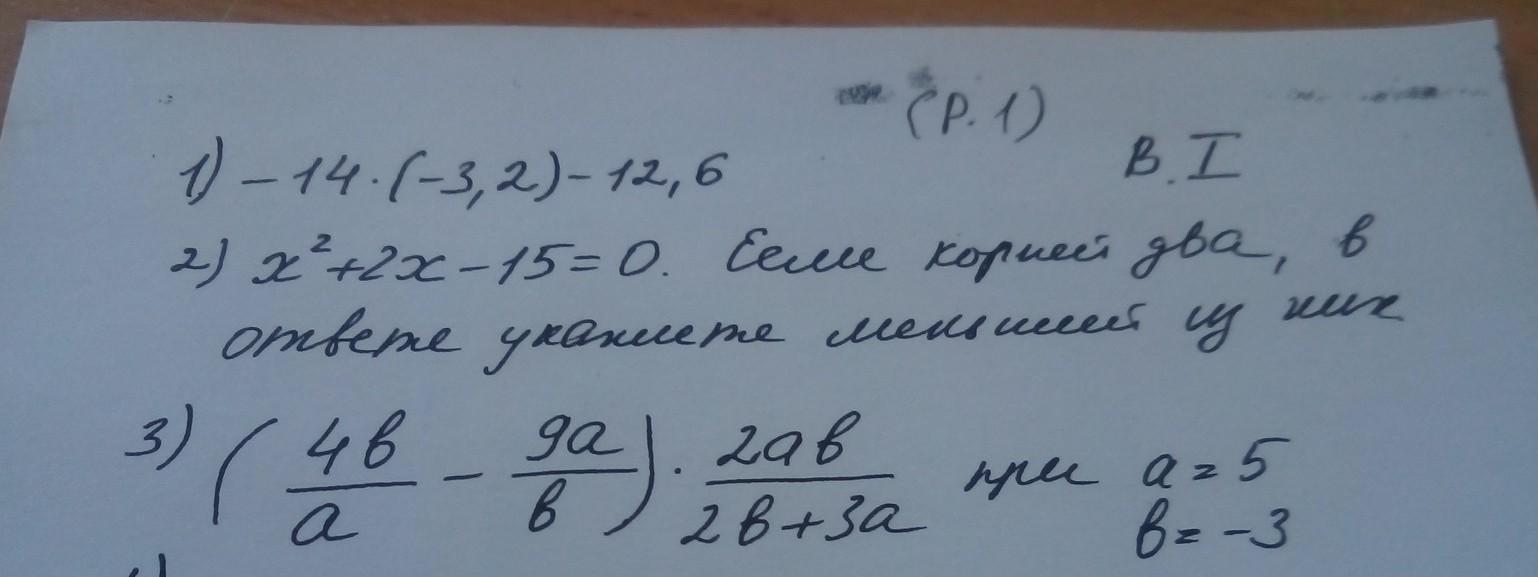 (Р. 1)
В. I
1) – 14 · (–3,2) – 12,6
2) x² + 2x – 15 = 0. Если корней два, в
ответе укажите меньший из них
3) (4b/a – 9a/b) · 2ab/(2b + 3a) при a = 5
b = –3